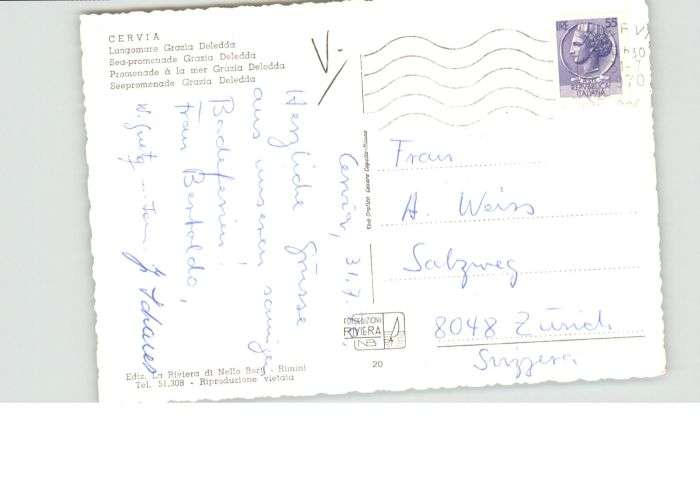 CERVIA
Lungomare Grazia Deledda
Sea-promenade Grazia Deledda
Promenade à la mer Grazia Deledda
Seepromenade Grazia Deledda
LIRE 55
REPUBBLICA
ITALIANA
Cervia, 31.7.
Herzliche Grüsse
aus unseren sonnigen
Badeferien!
Frau Bertoldo,
Frau
A. Weiss
Salzweg
8048 Zürich
Svizzera
FOTOEDIZIONI
RIVIERA
NB
20
Ediz. La Riviera di Nello Barji - Rimini
Tel. 51.308 - Riproduzione vietata